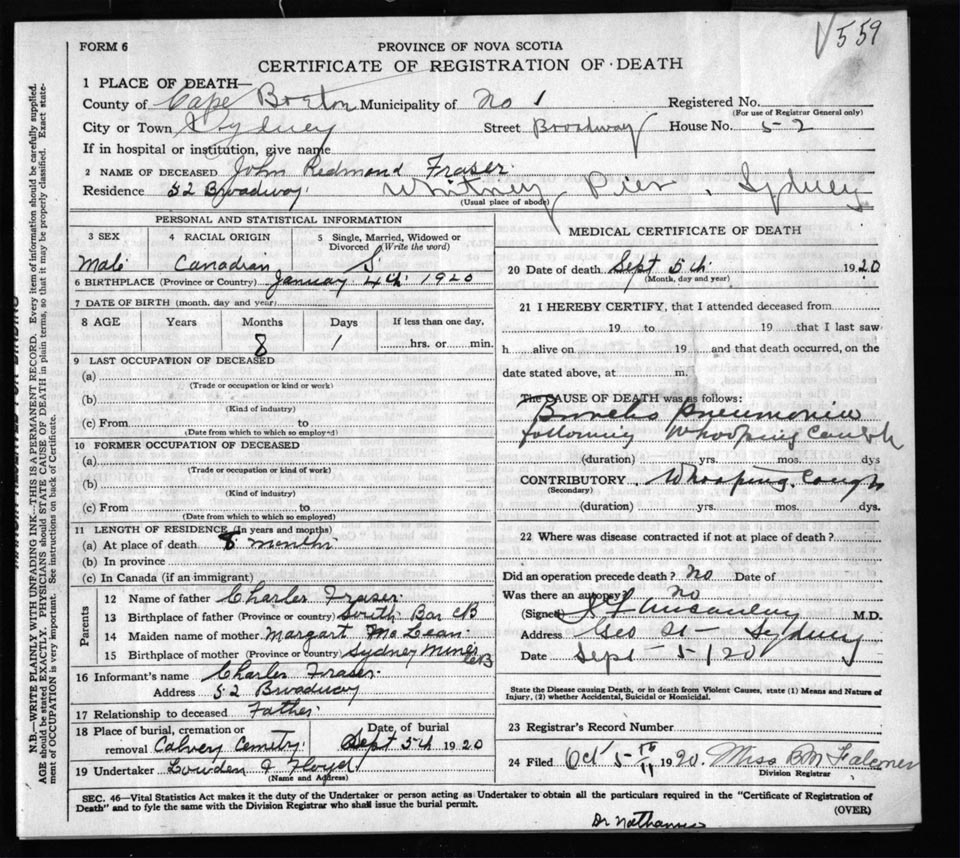 V559
FORM 6
PROVINCE OF NOVA SCOTIA
CERTIFICATE OF REGISTRATION OF DEATH
1 PLACE OF DEATH—
County of Cape Breton Municipality of No 1 Registered No.
(For use of Registrar General only)
City or Town Sydney Street Broadway House No. 52
If in hospital or institution, give name
2 NAME OF DECEASED John Redmond Fraser.
Residence 52 Broadway. Whitney Pier, Sydney
(Usual place of abode)
PERSONAL AND STATISTICAL INFORMATION
3 SEX 4 RACIAL ORIGIN 5 Single, Married, Widowed or Divorced (Write the word)
Male Canadian S.
6 BIRTHPLACE (Province or Country) January 4th 1920
7 DATE OF BIRTH (month, day and year)
8 AGE Years Months Days If less than one day,
8 1 hrs. or min.
9 LAST OCCUPATION OF DECEASED
(a)
(Trade or occupation or kind or work)
(b)
(Kind of industry)
(c) From to
(Date from which to which so employed)
10 FORMER OCCUPATION OF DECEASED
(a)
(Trade or occupation or kind of work)
(b)
(Kind of industry)
(c) From to
(Date from which to which so employed)
11 LENGTH OF RESIDENCE (In years and months)
(a) At place of death 8 months
(b) In province
(c) In Canada (if an immigrant)
Parents
12 Name of father Charles Fraser.
13 Birthplace of father (Province or country) South Bar CB
14 Maiden name of mother Margart McLean.
15 Birthplace of mother (Province or country) Sydney Mines CB
16 Informant's name Charles Fraser.
Address 52 Broadway
17 Relationship to deceased Father.
18 Place of burial, cremation or removal Calvery Cemtry. Date of burial Sept 5th 1920
19 Undertaker Lowden & Floyd
(Name and Address)
MEDICAL CERTIFICATE OF DEATH
20 Date of death Sept 5th 1920
(Month, day and year)
21 I HEREBY CERTIFY, that I attended deceased from
19 to 19 that I last saw
h alive on 19 and that death occurred, on the
date stated above, at m.
The CAUSE OF DEATH was as follows:
Broncho Pneumonia
following Whooping Cough
(duration) yrs. mos. dys
CONTRIBUTORY Whooping Cough
(Secondary)
(duration) yrs. mos. dys.
22 Where was disease contracted if not at place of death?
Did an operation precede death? No Date of
Was there an autopsy? No
(Signed) M.D.
Address Geo St - Sydney
Date Sept 5/20
State the Disease causing Death, or in death from Violent Causes, state (1) Means and Nature of
Injury, (2) whether Accidental, Suicidal or Homicidal.
23 Registrar's Record Number
24 Filed Oct 5th 1920. Miss BM Falconer
Division Registrar
SEC. 46—Vital Statistics Act makes it the duty of the Undertaker or person acting as Undertaker to obtain all the particulars required in the "Certificate of Registration of
Death" and to fyle the same with the Division Registrar who shall issue the burial permit.
(OVER)
N.B.—WRITE PLAINLY WITH UNFADING INK—THIS IS A PERMANENT RECORD. Every item of information should be carefully supplied.
AGE should be stated EXACTLY. PHYSICIANS should STATE CAUSE OF DEATH in plain terms, so that it may be properly classified. Exact state-
ment of OCCUPATION is very important. See instructions on back of Certificate.